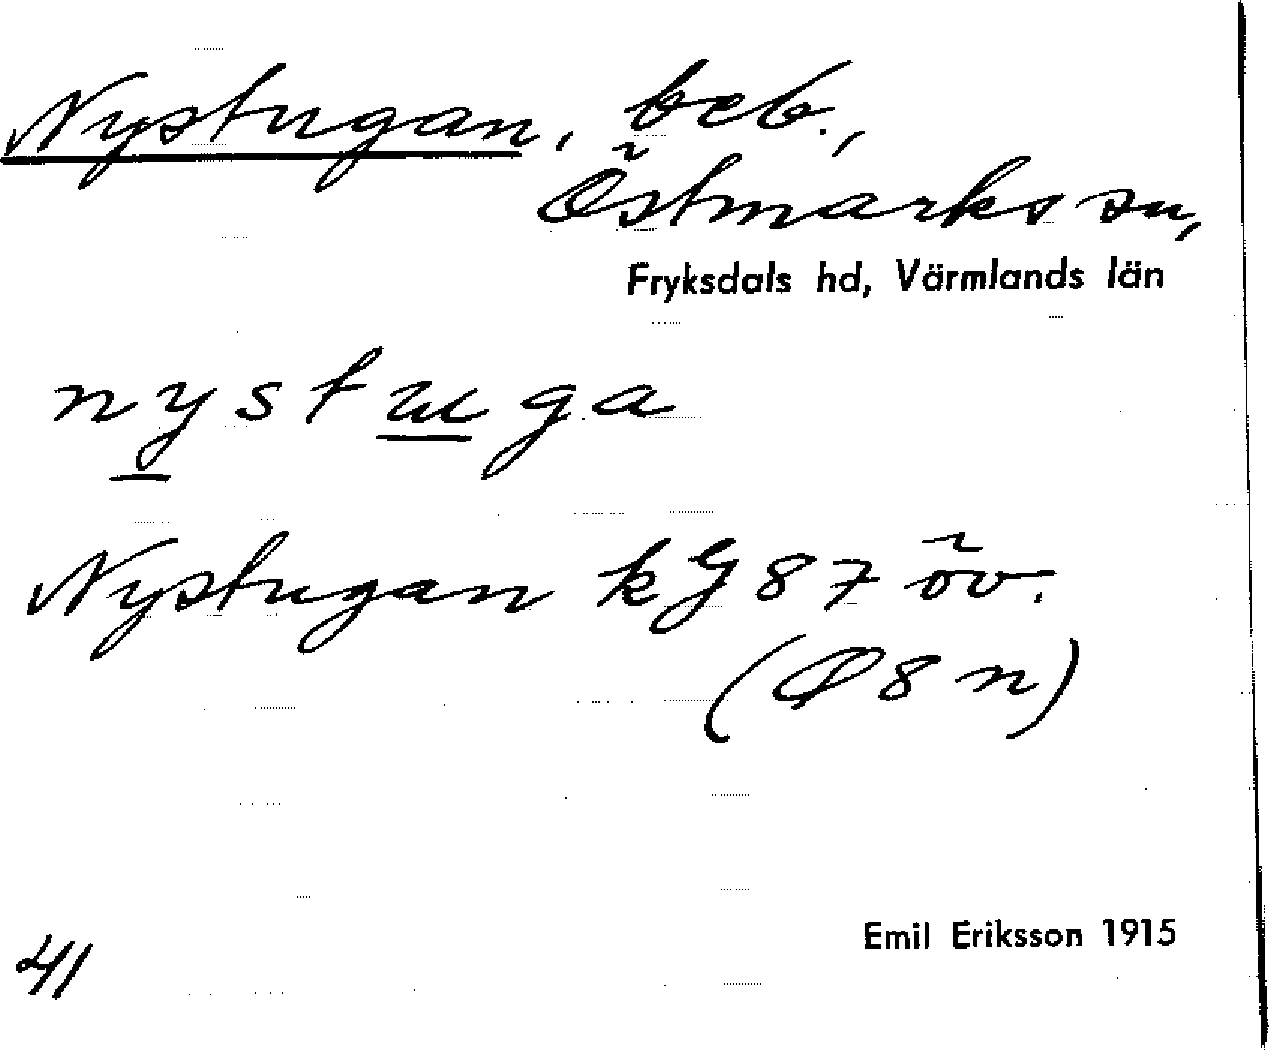 Nystugan, beb.,
Östmarks sn,
Fryksdals hd, Värmlands län
nystuga
Nystugan kG 87 öv.
(Ø 8 n)
Emil Eriksson 1915
41